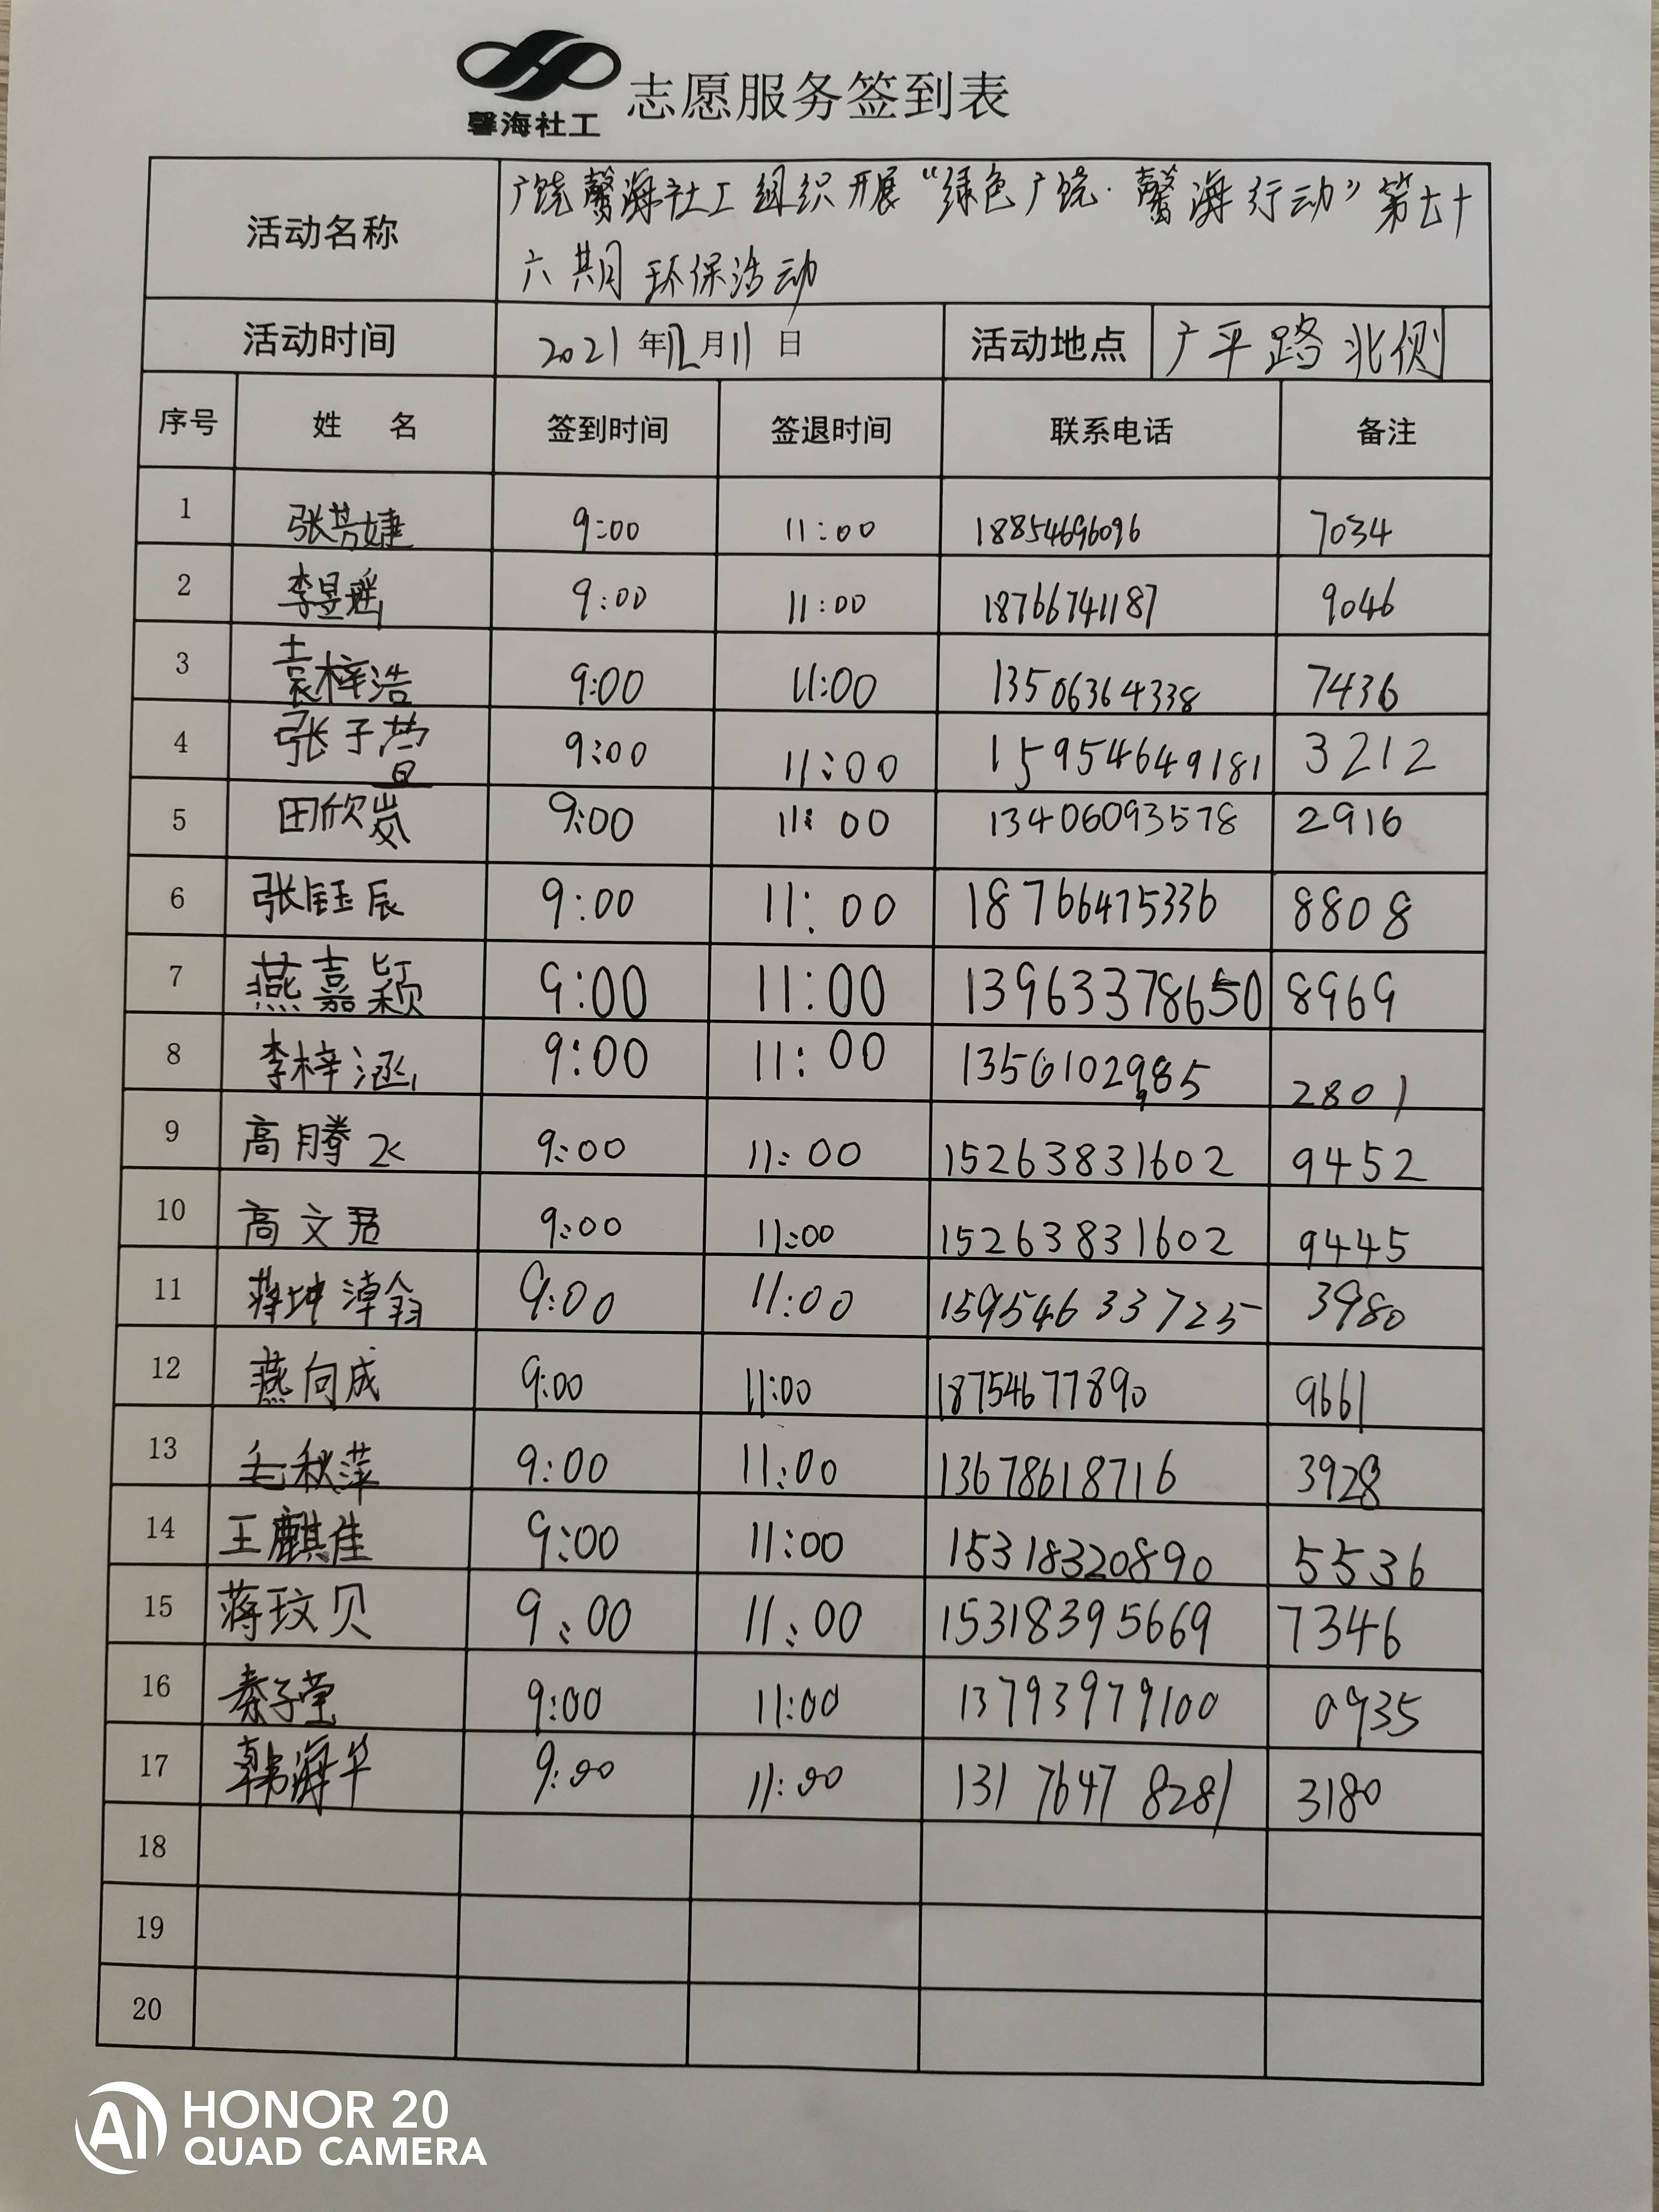 馨海社工
志愿服务签到表
活动名称 广饶馨海社工组织开展“绿色广饶·馨海行动”第七十
六期环保活动
活动时间 2021年12月11日 活动地点 广平路北侧
序号 姓 名 签到时间 签退时间 联系电话 备注
1 张芳婕 9:00 11:00 18854696096 7034
2 李昱瑶 9:00 11:00 18766741187 9046
3 袁梓浩 9:00 11:00 13506364338 7436
4 张子萱 9:00 11:00 15954649181 3212
5 田欣岚 9:00 11:00 13406093578 2916
6 张钰辰 9:00 11:00 18766475336 8808
7 燕嘉颖 9:00 11:00 13963378650 8969
8 李梓涵 9:00 11:00 13561029985 2801
9 高腾飞 9:00 11:00 15263831602 9452
10 高文君 9:00 11:00 15263831602 9445
11 蒋坤淖翰 9:00 11:00 15954633725 3980
12 燕向成 9:00 11:00 18754677890 9661
13 毛秋萍 9:00 11:00 13678618716 3928
14 王麒佳 9:00 11:00 15318320890 5536
15 蒋玟贝 9:00 11:00 15318395669 7346
16 秦子莹 9:00 11:00 13793979100 0935
17 韩海华 9:00 11:00 131 7647 8281 3180
18
19
20
AI HONOR 20
QUAD CAMERA